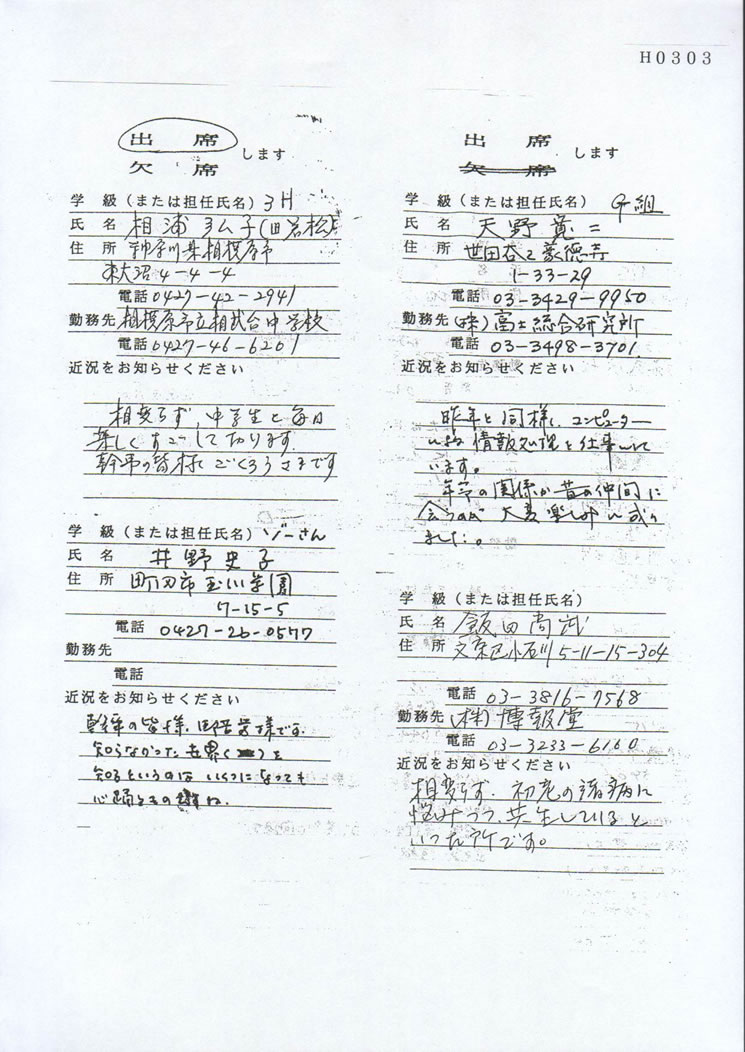 H0303
出 席
欠 席 します
学 級 (または担任氏名) 3H
氏 名 相浦 子(旧岩松)
住 所 神奈川県相模原市
東大沼4-4-4
電話 0427-42-2941
勤務先 相模原市立相武台中学校
電話 0427-46-6201
近況をお知らせください
相変らず、中学生と毎日
楽しくすごして切ります
幹事の皆様ごくろうさまです
学 級 (または担任氏名) ゾーさん
氏 名 井野史子
住 所 町田市玉川学園
7-15-5
電話 0427-26-0577
勤務先
電話
近況をお知らせください
幹事の皆様、御苦労様です。
知らなかった世界( )を
知るというのは いくつになっても
心踊るもの ね.
出 席
欠 席 します
学 級 (または担任氏名) G組
氏 名 天野寛二
住 所 世田谷区豪徳寺
1-33-29
電話 03-3429-9950
勤務先 (株)富士総合研究所
電話 03-3498-3701
近況をお知らせください
昨年と同様、コンピューター
による情報処理を仕事にして
います。
年令の関係か昔の仲間に
会うのが大変楽しみに成り
ました。
学 級 (または担任氏名)
氏 名 飯田尚武
住 所 文京区小石川5-11-15-304
電話 03-3816-7568
勤務先 (株)博報堂
電話 03-3233-6160
近況をお知らせください
相変らず、初老の諸病に
悩みつつ、共生していると
いった所です。